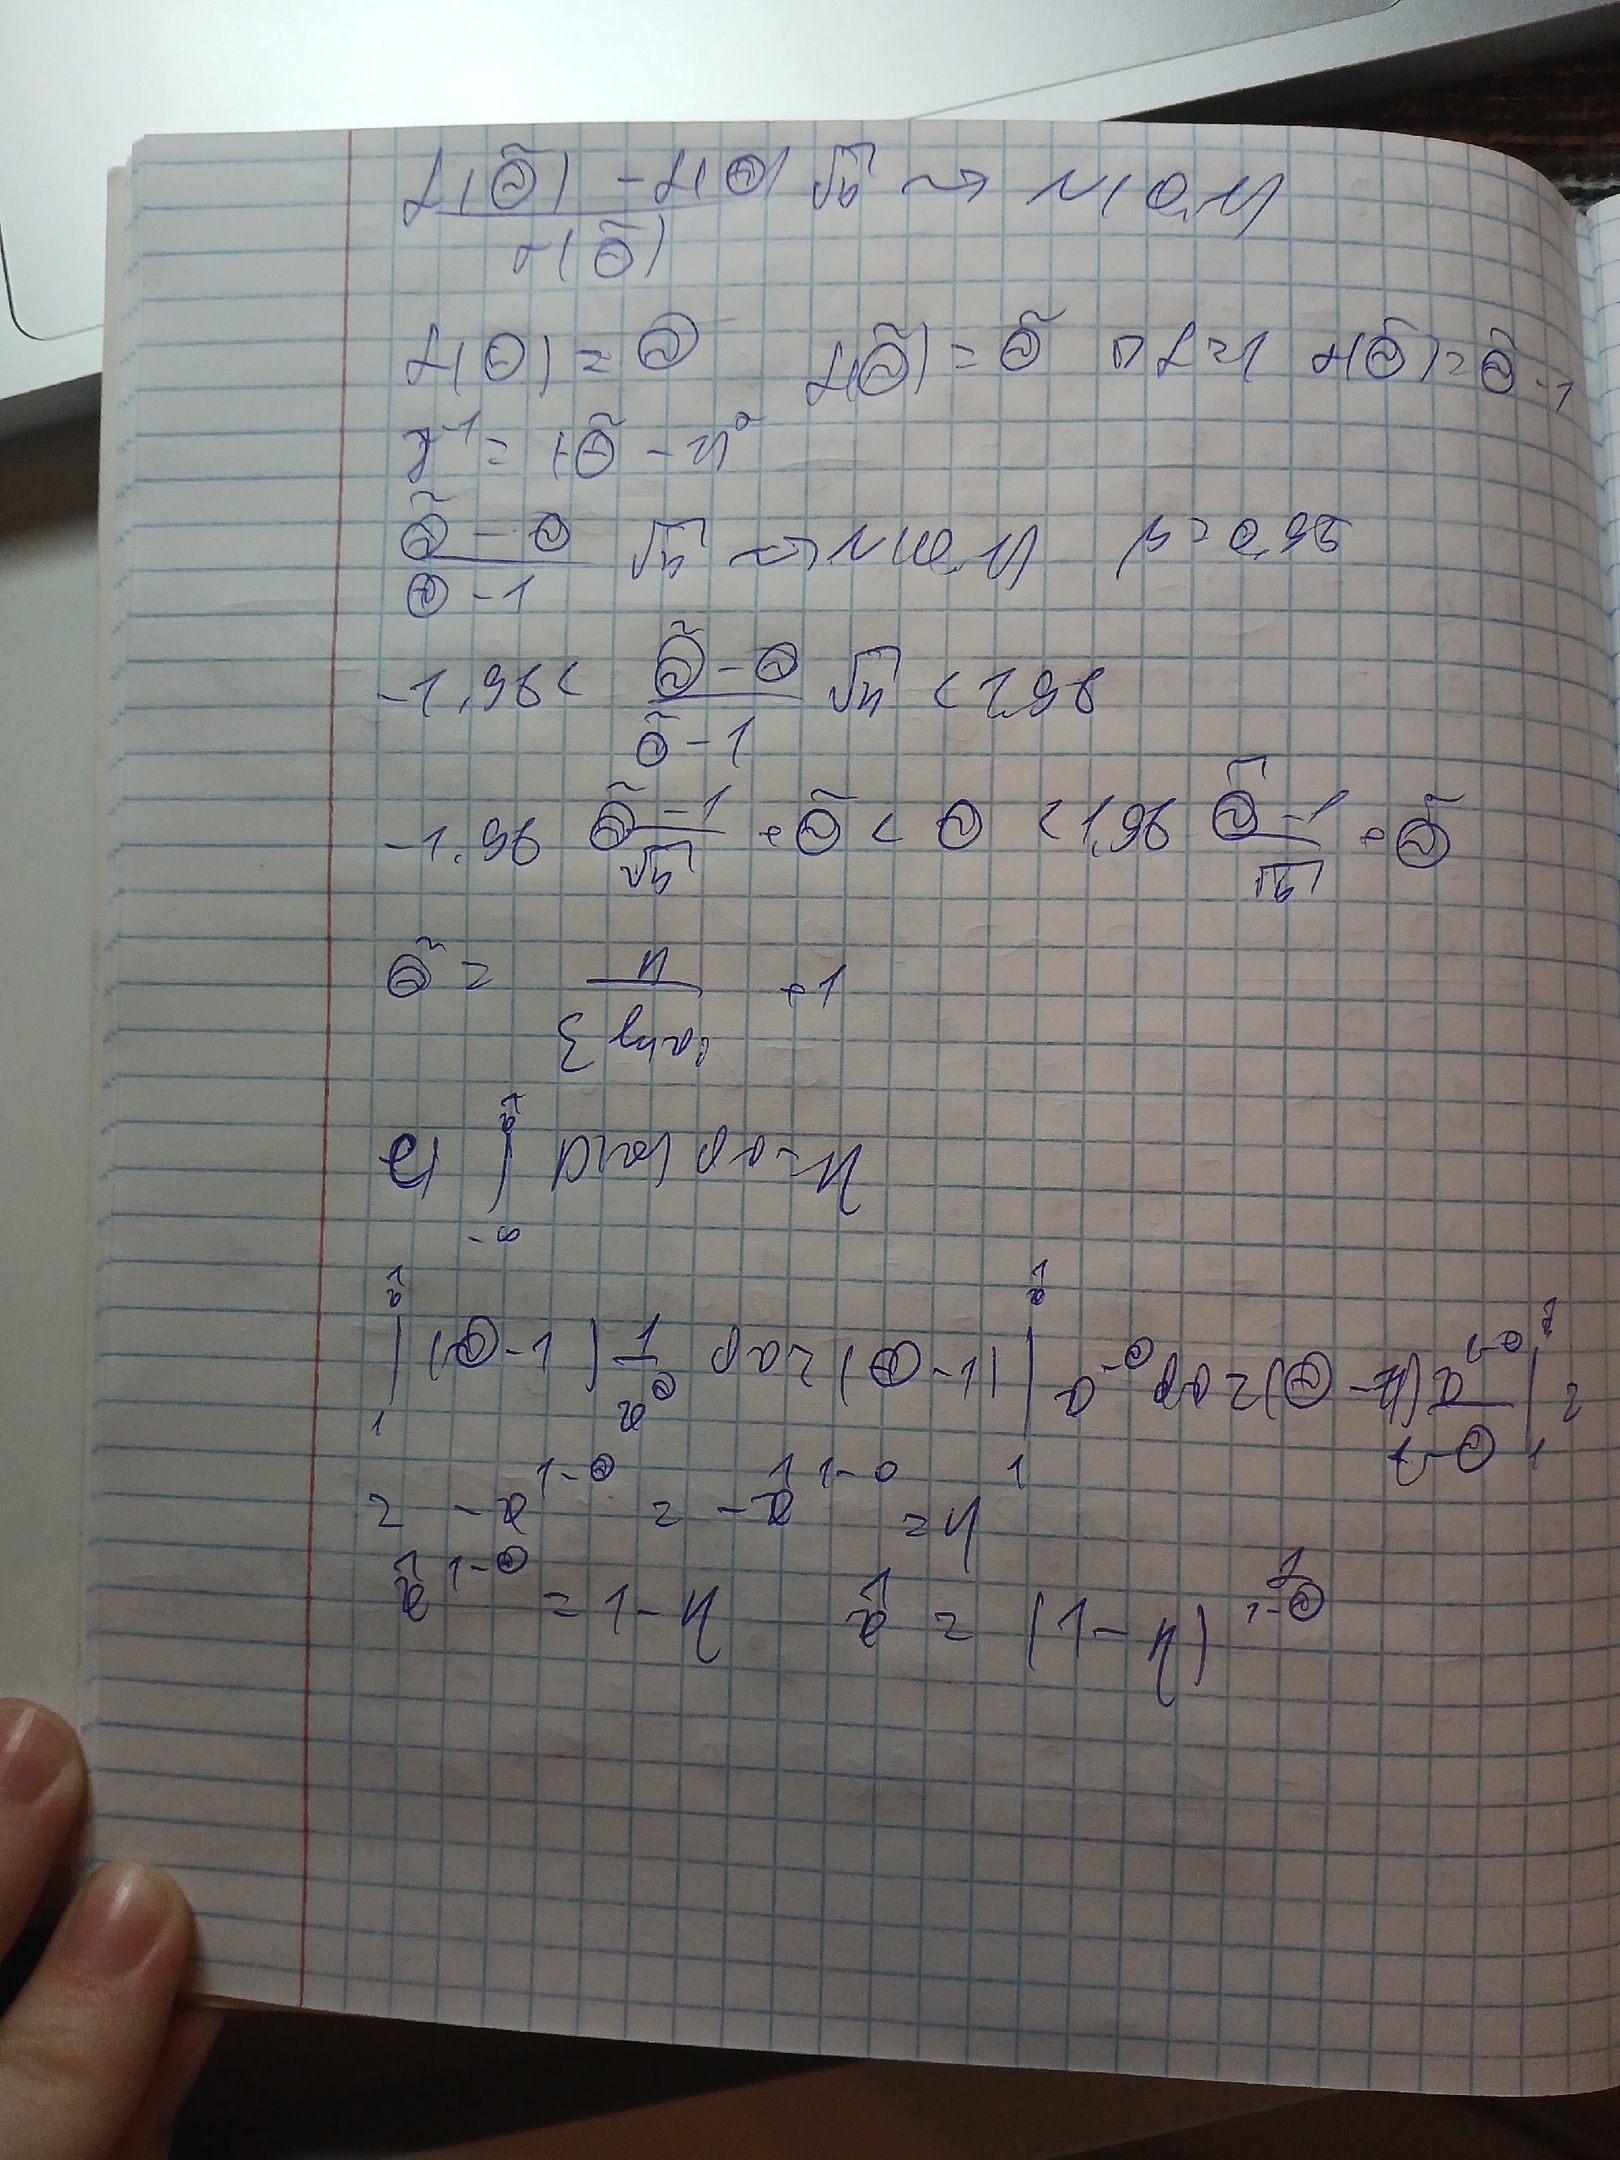 (f(θ̃) - f(θ)) / σ(θ̃) √n ~> N(0,1)
f(θ) = θ f(θ̃) = θ̃ ∇f = 1 σ(θ̃) = θ̃ - 1
I⁻¹ = (θ̃ - 1)²
(θ̃ - θ) / (θ - 1) √n ~> N(0,1) β = 0,95
-1,96 < (θ̃ - θ) / (θ̃ - 1) √n < 1,96
-1,96 (θ̃ - 1)/√n + θ̃ < θ < 1,96 (θ̃ - 1)/√n + θ̃
θ̃ = n / (Σ ln xᵢ) + 1
e) ∫_{-∞}^{x̂} p(x) dx = η
∫_1^{x̂} (θ-1) 1/x^θ dx = (θ-1) ∫_1^{x̂} x^{-θ} dx = (θ-1) x^{1-θ}/(1-θ) |_1^{x̂} =
= -x^{1-θ} = -x̂^{1-θ} = η
x̂^{1-θ} = 1 - η x̂ = (1 - η)^{1/(1-θ)}